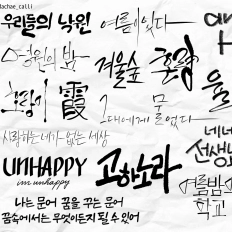 achae_calli
우리들의 낙원
여름이었다
영원의 밤
겨울숲
호랑이
霞
그대에게 물었다
사랑하는 네가 없는 세상
네네
선생님
UNHAPPY
im unhappy
고하노라
여름밤
학교
나는 문어 꿈을 꾸는 문어
꿈속에서는 무엇이든지 될 수 있어